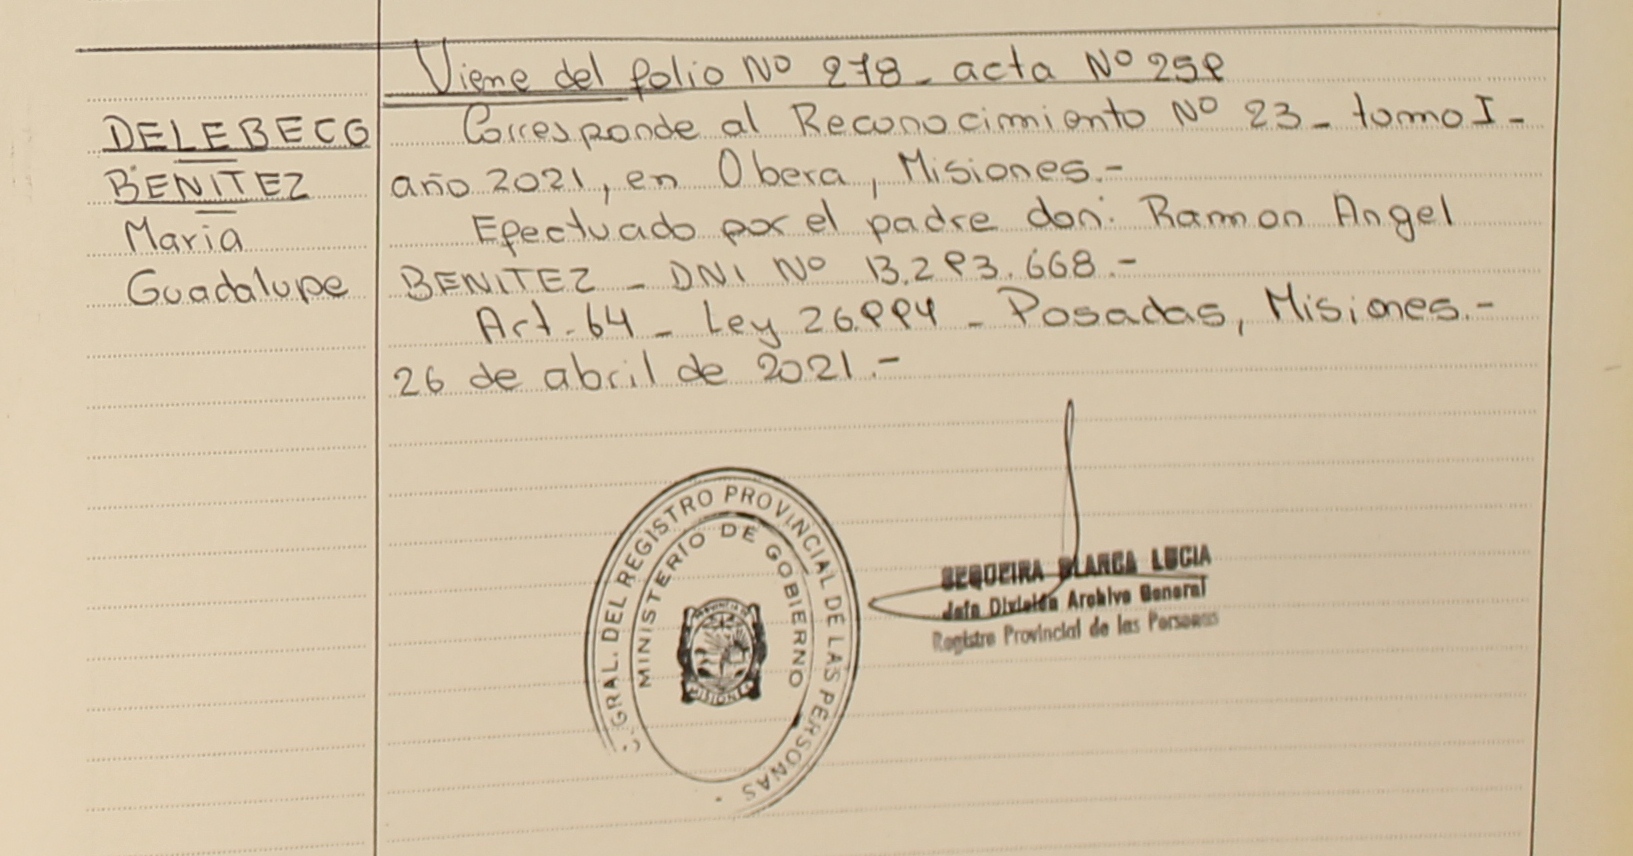 Viene del folio Nº 278_ acta Nº 259
DELEBECQ
BENITEZ
Maria
Guadalupe
Corresponde al Reconocimiento Nº 23_ tomo I_
año 2021, en Obera, Misiones.-
Efectuado por el padre don: Ramon Angel
BENITEZ _ DNI Nº 13.293.668.-
Art. 64 _ Ley 26.994 _ Posadas, Misiones.-
26 de abril de 2021.-
GRAL. DEL REGISTRO PROVINCIAL DE LAS PERSONAS -
MINISTERIO DE GOBIERNO
MISIONES
SEQUEIRA BLANCA LUCIA
Jefa División Archivo General
Registro Provincial de las Personas